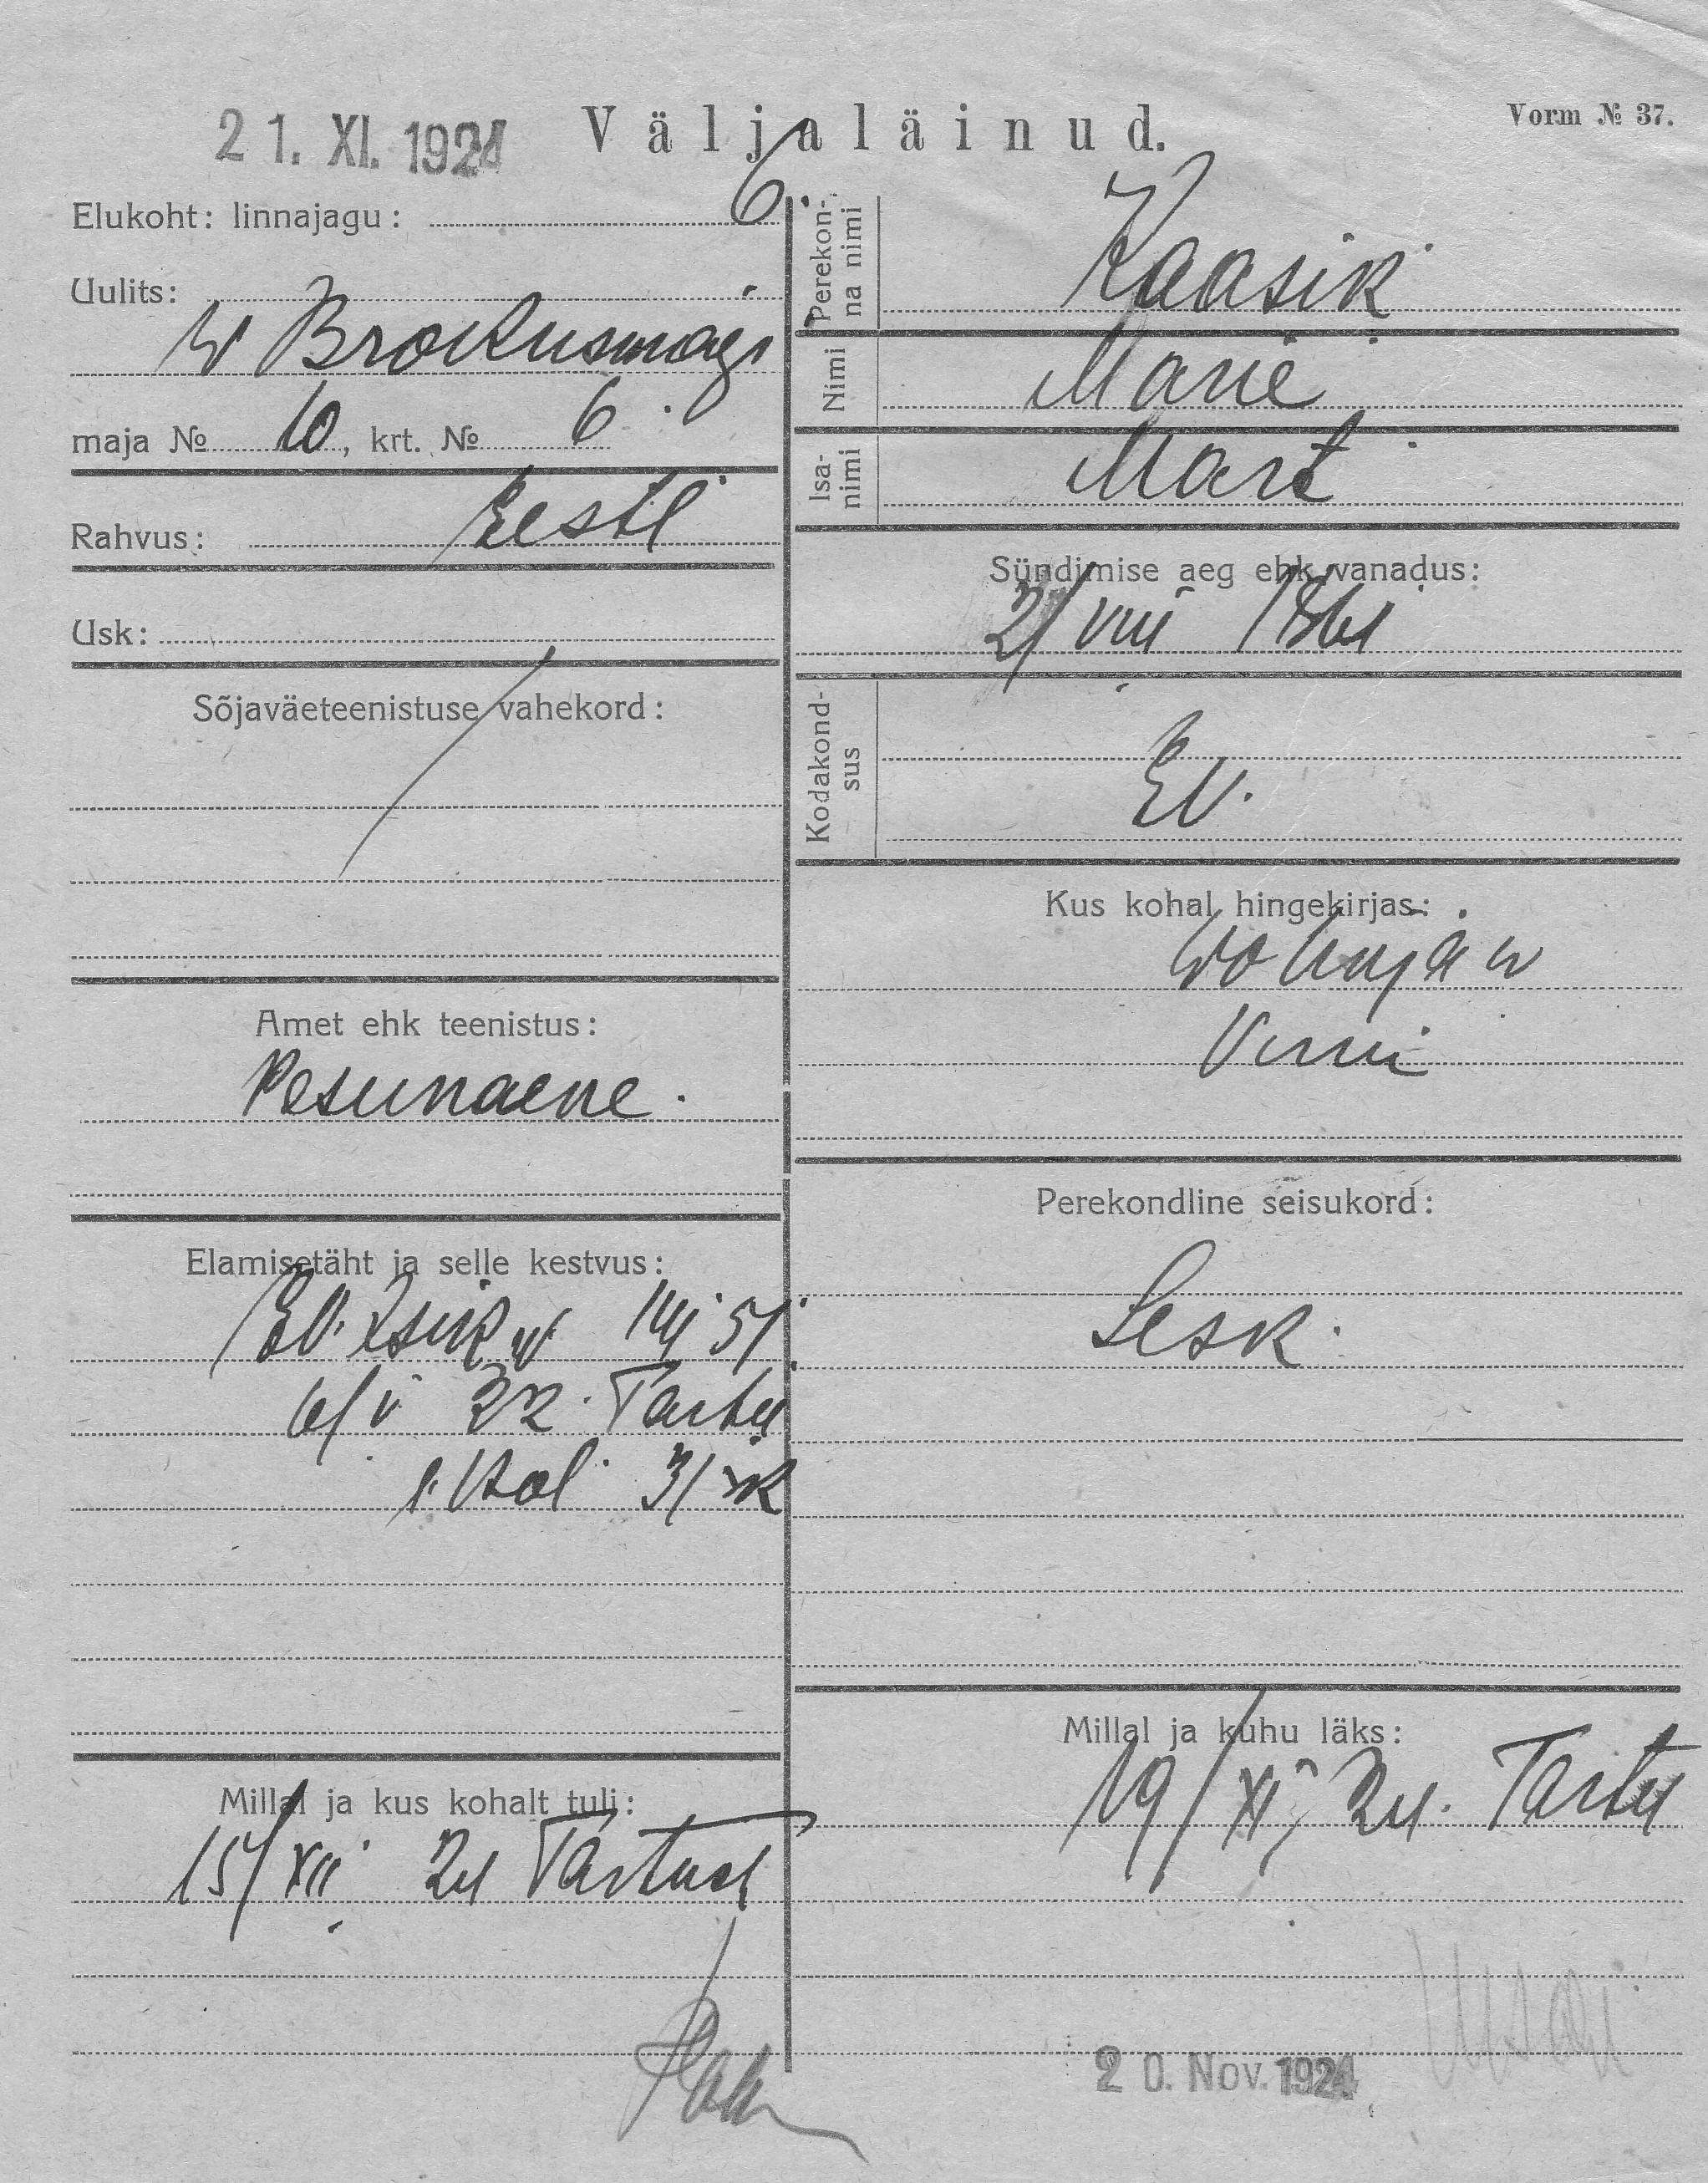 21. XI. 1924
Väljaläinud.
Vorm № 37.
Elukoht: linnajagu: 6
Uulits:
W Brokusmägi
maja № 10, krt. № 6.
Rahvus: Eesti
Usk:
Sõjaväeteenistuse vahekord:
Amet ehk teenistus:
Pesunaene.
Elamisetäht ja selle kestvus:
22. Tartu
Millal ja kus kohalt tuli:
15/XII 24 Tartust
Perekonna nimi
Kaasik
Nimi
Marie
Isanimi
Mart
Sündimise aeg ehk vanadus:
2/VIII 1861
Kodakondsus
EV.
Kus kohal hingekirjas:
Perekondline seisukord:
Lesk.
Millal ja kuhu läks:
19/XI 24. Tartu
20. Nov. 1924